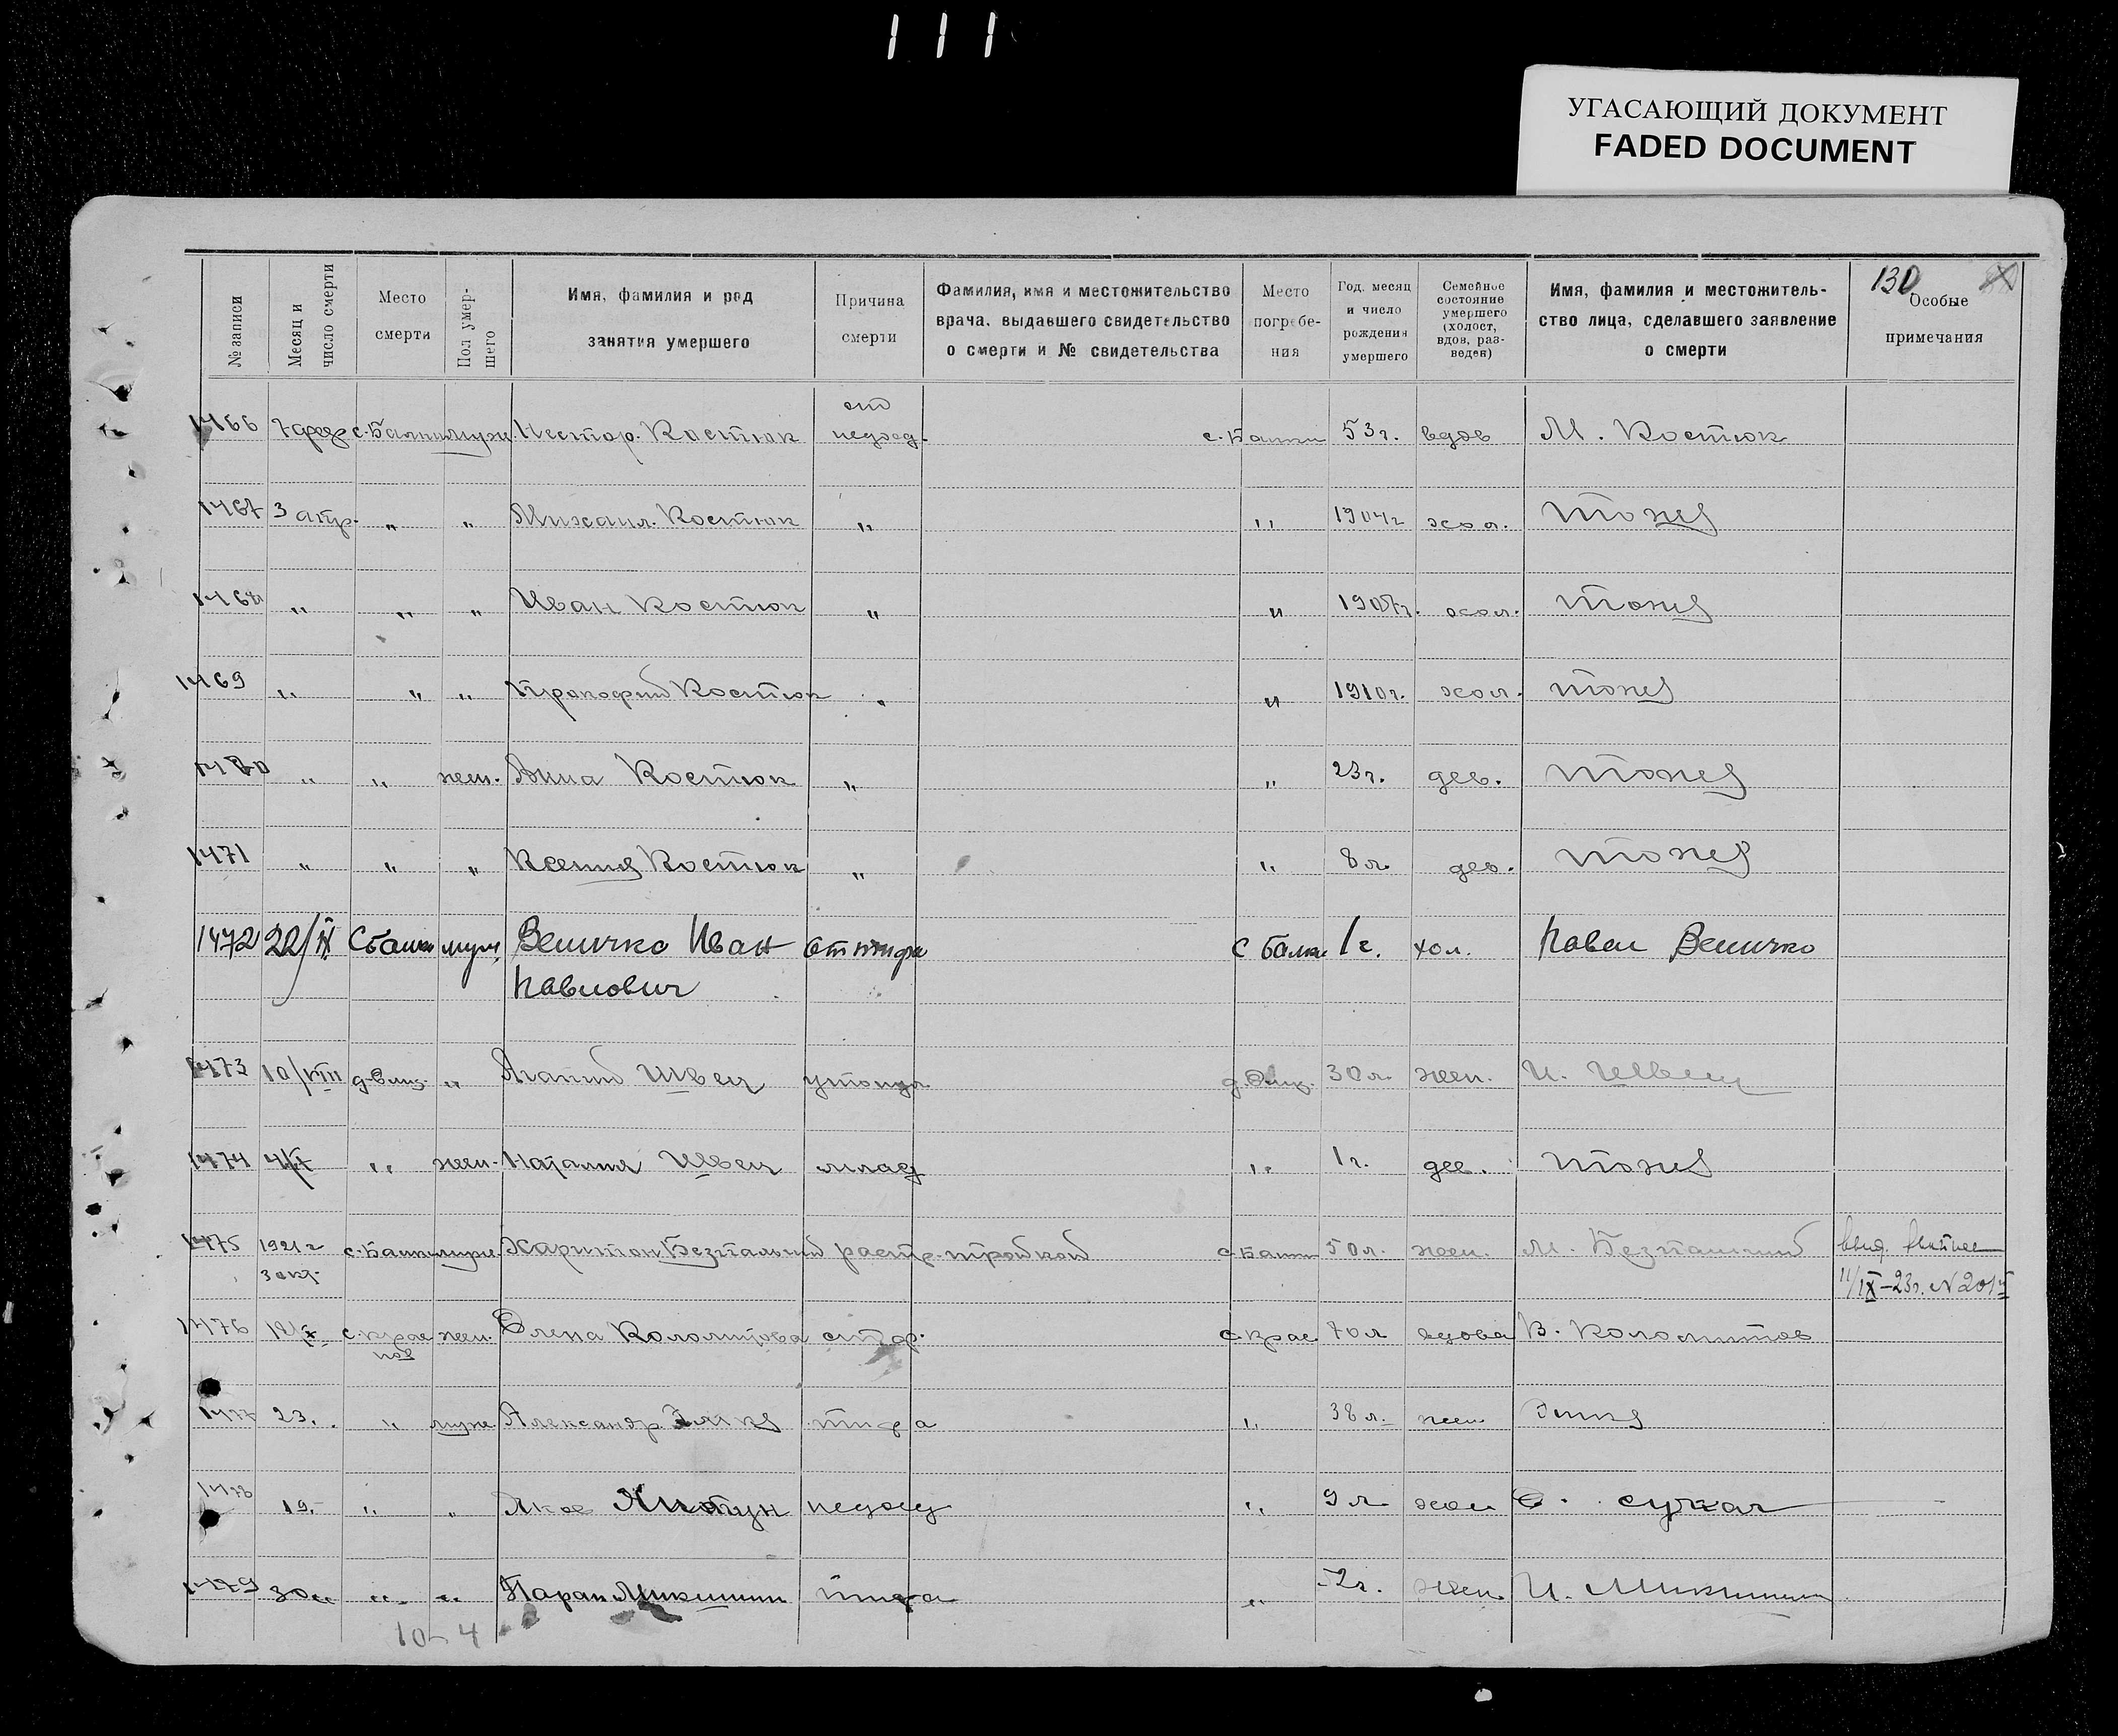 111
УГАСАЮЩИЙ ДОКУМЕНТ
FADED DOCUMENT
130
№ записи
Месяц и число смерти
Место смерти
Пол умершего
Имя, фамилия и род занятия умершего
Причина смерти
Фамилия, имя и местожительство врача, выдавшего свидетельство о смерти и № свидетельства
Место погребения
Год, месяц и число рождения умершего
Семейное состояние умершего (холост, вдов, разведен)
Имя, фамилия и местожительство лица, сделавшего заявление о смерти
Особые примечания
1466 с. Балки муж. Нестор. Костюк от недоед. с. Балки 53 г. вдов М. Костюк
1467 3 апр. „ „ Михаил. Костюк „ „ 1904 г хол. тоже
„ „ „ Иван Костюк „ „ 1907 г. хол. тоже
1469 „ „ „ Прокофий Костюк „ „ 1910 г. хол. тоже
„ „ жен. Анна Костюк „ „ 23 г. дев. тоже
1471 „ „ „ Ксения Костюк „ „ 8 л. дев. тоже
1472 с Балки муж. Величко Иван Павлович от тифа с Балки 1 г. хол. Павел Величко
1473 10/VIII „ Агапий Швец утонул 30 л. жен. И. Швец
1474 „ жен. Наталия Швец млад „ 1 г. дев. тоже
1475 1921 г с. Балки муж. Харитон Безпалый тройкой с. Балки 50 л. жен. М. Безпалый
11/IX-23 г.
1476 жен. Елена с. Крас 70 л вдова В.
1477 23. „ муж. Александр тифа „ 38 л. жен.
19. „ „ Яков недоед „ 9 л хол
1479 30 „ „ „ тифа „ жен И.
10-4